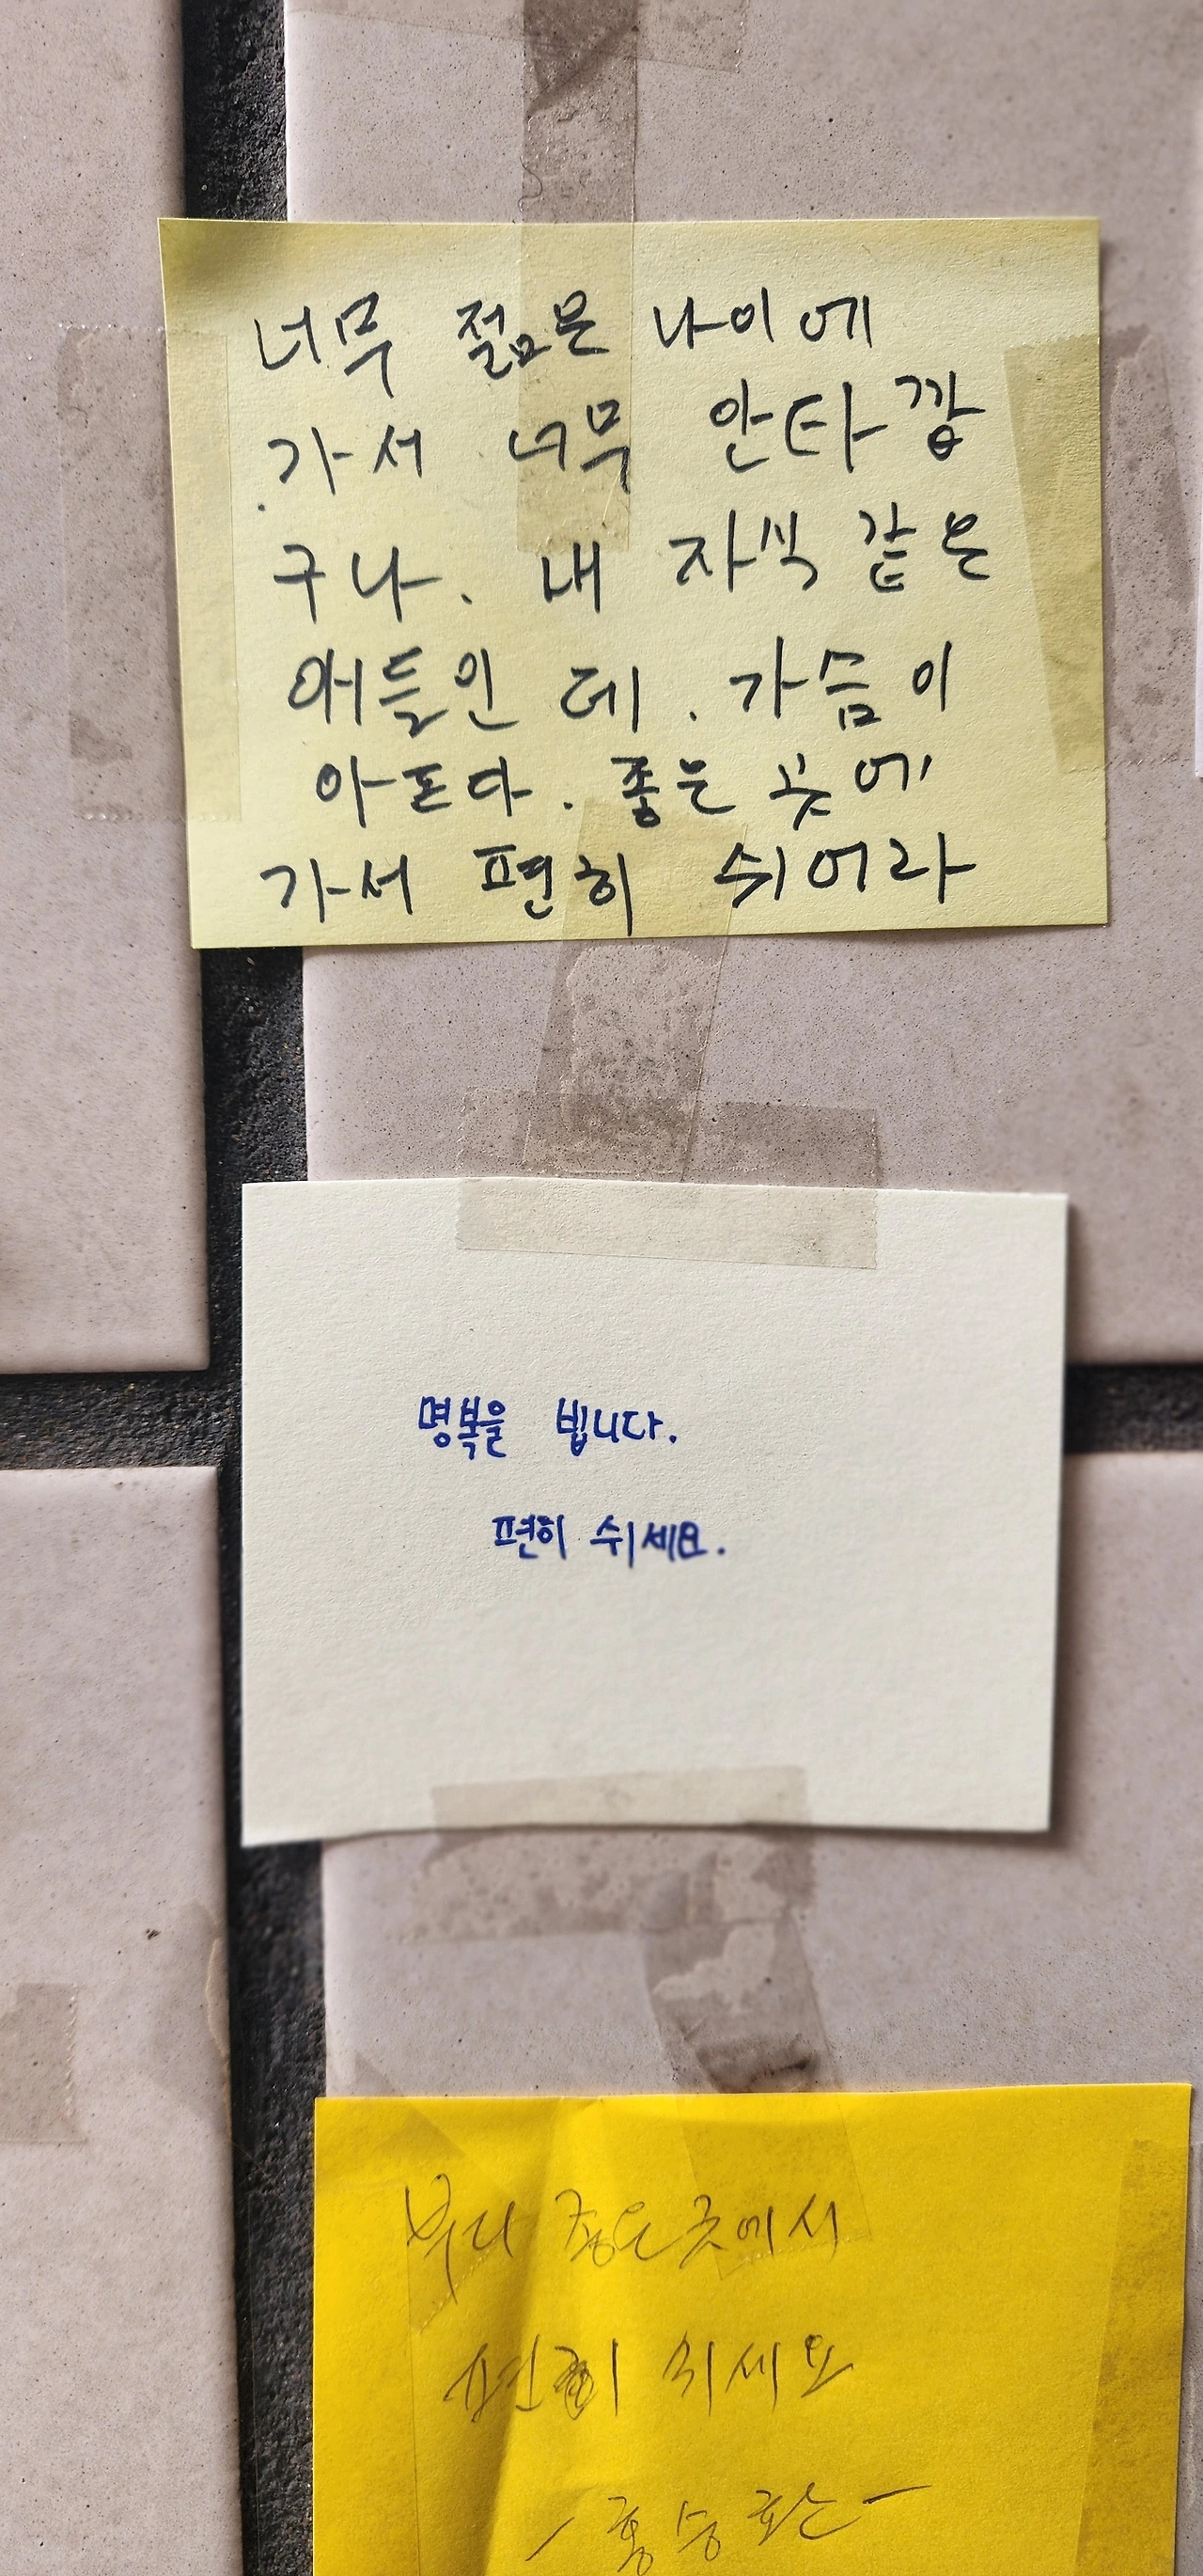 너무 젊은 나이에
가서 너무 안타깝
구나. 내 자식 같은
애들인 데. 가슴이
아프다. 좋은 곳에
가서 편히 쉬어라
명복을 빕니다.
편히 쉬세요.
부디 좋은곳에서
편히 쉬세요